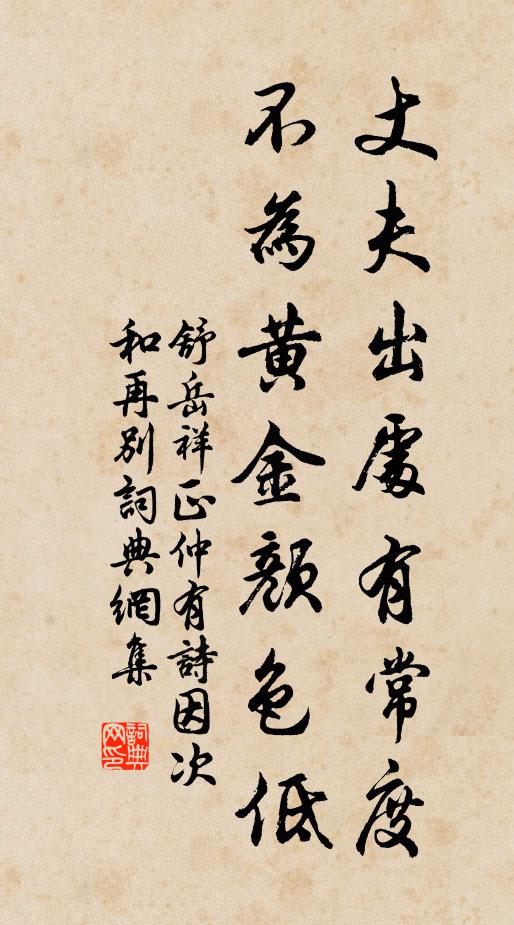 丈夫出處有常度
不為黃金顏色低
舒岳祥正仲有詩因次
和再別詞典網集
詞典
网印